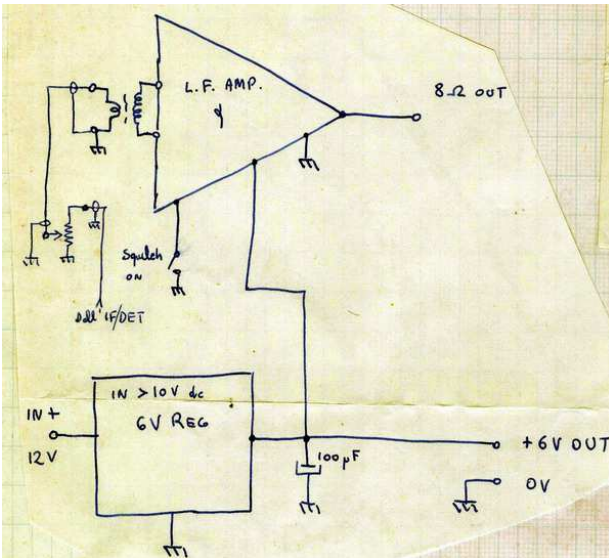 L.F. AMP.
8Ω OUT
Squlch
ON
Dall' IF/DET
IN > 10V dc
6V REG
IN +
12V
100µF
+6V OUT
0V